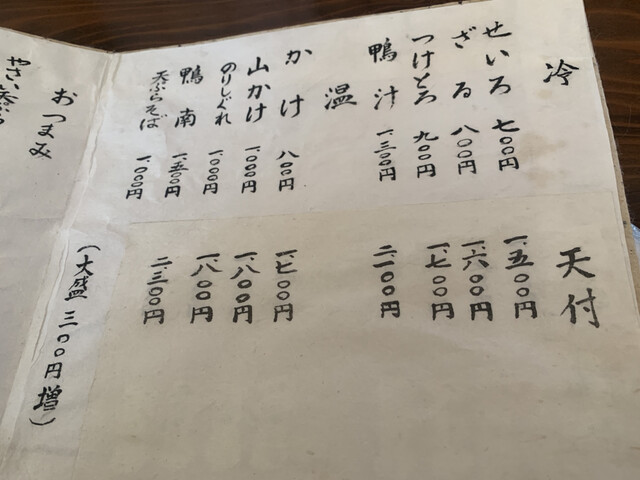 冷 天付
せいろ 七〇〇円 一、五〇〇円
ざる 八〇〇円 一、六〇〇円
つけとろ 九〇〇円 一、七〇〇円
鴨汁 一、三〇〇円 二、一〇〇円
温
かけ 八〇〇円 一、七〇〇円
山かけ 一、〇〇〇円 一、八〇〇円
のりしぐれ 一、〇〇〇円 一、八〇〇円
鴨南 一、五〇〇円 二、三〇〇円
天ぷらそば 一、〇〇〇円
(大盛 三〇〇円増)
おつまみ
やさい天ぷら